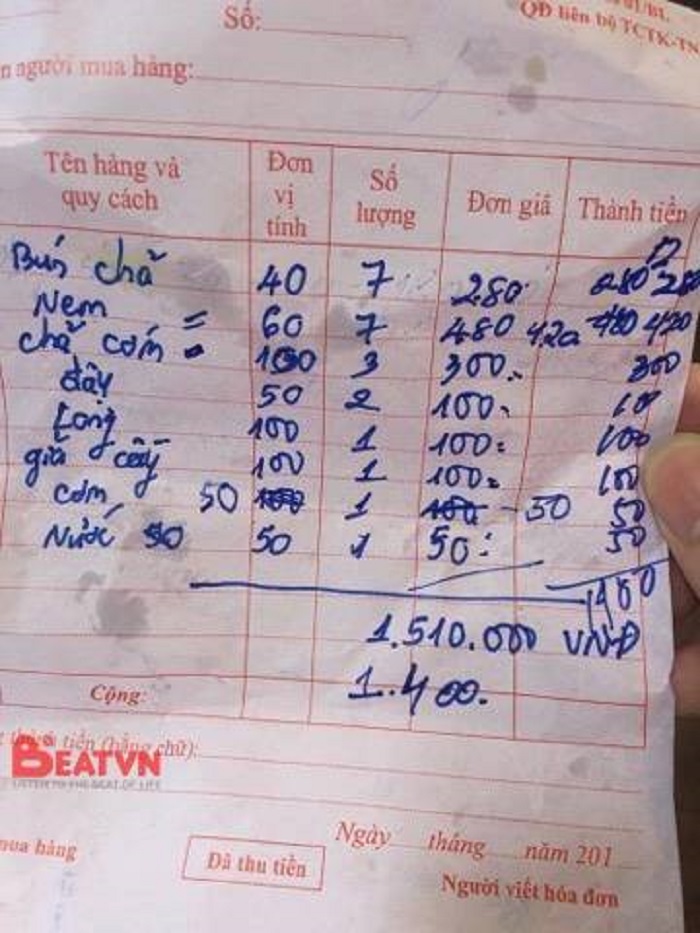 01/BL
QĐ liên bộ TCTK-TN
Số:
n người mua hàng:
Tên hàng và quy cách Đơn vị tính Số lượng Đơn giá Thành tiền
Bún chả 40 7 280 280
Nem 60 7 480 420 480 420
chả cơm 100 3 300 300
đậy 50 2 100 100
Lòng 100 1 100 100
giả cầy 100 1 100 100
cơm 50 100 1 100 50 50
Nước 50 50 1 50 50
1400
1.510.000 VNĐ
Cộng: 1.400.
tiền (bằng chữ):
BEATVN
LISTEN TO THE BEAT OF LIFE
Ngày tháng năm 201
mua hàng Đã thu tiền Người viết hóa đơn